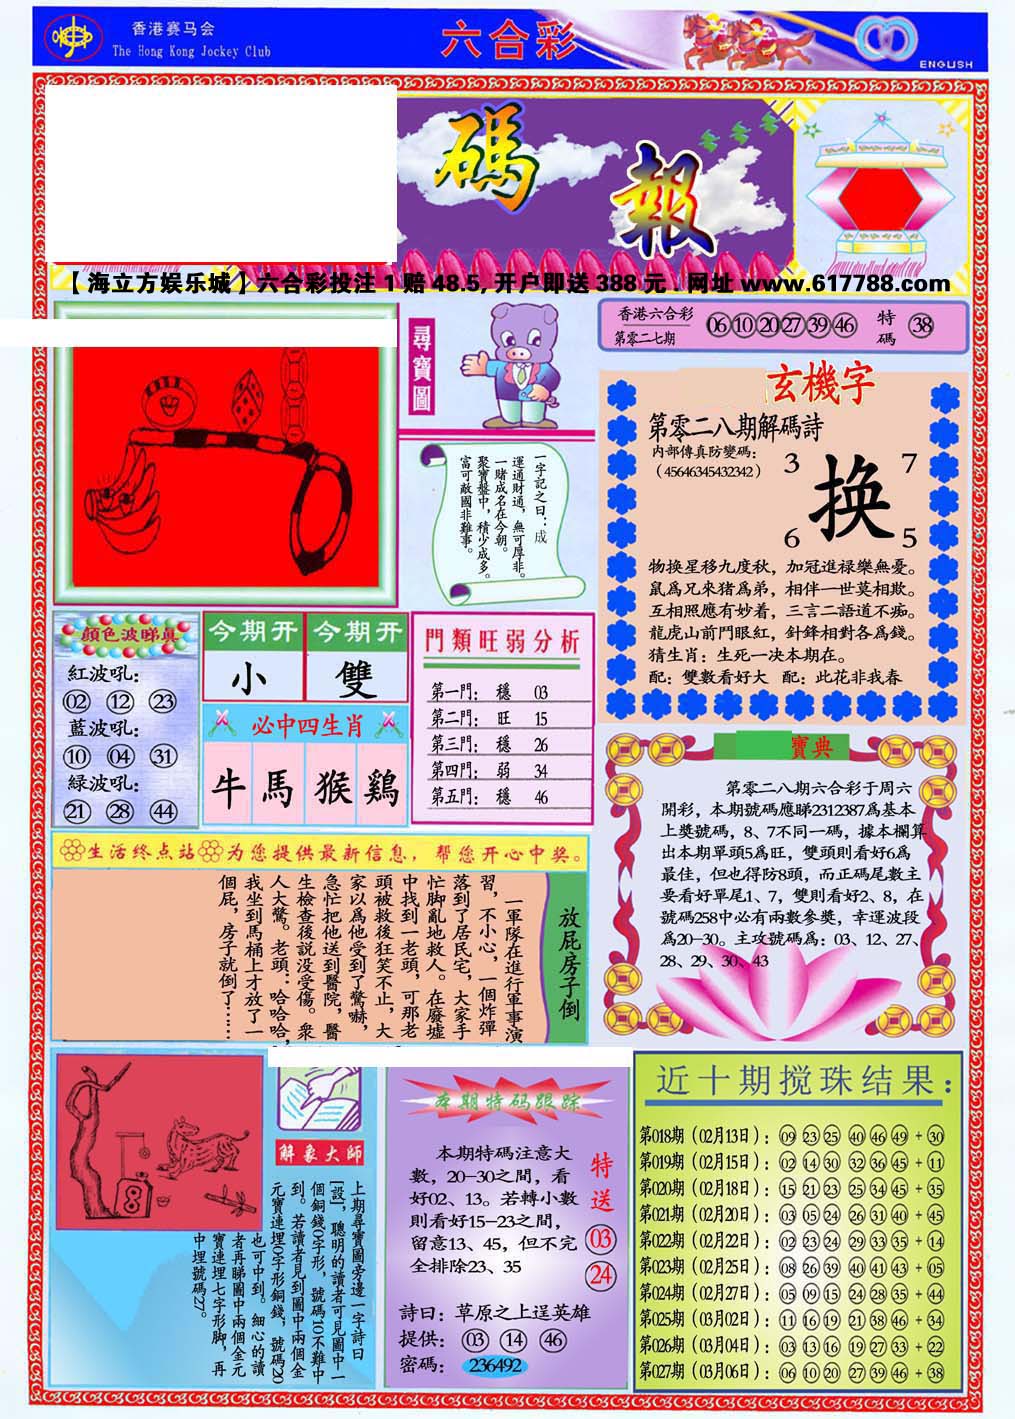 香港赛马会
The Hong Kong Jockey Club
六合彩
ENGLISH
碼報
【海立方娱乐城】六合彩投注1赔48.5,开户即送388元．网址www.617788.com
尋寶圖
香港六合彩
第零二七期
06 10 20 27 39 46
特碼
38
一字記之曰：成
運通財通，無可厚非。
一賭成名在今朝。
聚寶盤中，積少成多。
富可敵國非難事。
玄機字
第零二八期解碼詩
内部傳真防變碼：
（45646345432342）
3 7
换
6 5
物换星移九度秋，加冠進禄樂無憂。
鼠爲兄來猪爲弟，相伴一世莫相欺。
互相照應有妙着，三言二語道不痴。
龍虎山前鬥眼紅，針鋒相對各爲錢。
猜生肖：生死一决本期在。
配：雙數看好大　配：此花非我春
顔色波睇真
紅波吼：
02 12 23
藍波吼：
10 04 31
緑波吼：
21 28 44
今期开 今期开
小 雙
必中四生肖
牛 馬 猴 鷄
門類旺弱分析
第一門： 穩 03
第二門： 旺 15
第三門： 穩 26
第四門： 弱 34
第五門： 穩 46
寶典
第零二八期六合彩于周六
開彩，本期號碼應睇2312387爲基本
上獎號碼，8、7不同一碼，據本欄算
出本期單頭5爲旺，雙頭則看好6爲
最佳，但也得防8頭，而正碼尾數主
要看好單尾1、7，雙則看好2、8，在
號碼258中必有兩數參獎，幸運波段
爲20—30。主攻號碼爲：03、12、27、
28、29、30、43
生活终点站 为您提供最新信息，帮您开心中奖。
放屁房子倒
一軍隊在進行軍事演
習，不小心，一個炸彈
落到了居民宅，大家手
忙脚亂地救人。在廢墟
中找到一老頭，可那老
頭被救後狂笑不止，大
家以爲他受到了驚嚇，
急忙把他送到醫院，醫
生檢查後説没受傷。衆
人大驚。老頭：哈哈哈，
我坐到馬桶上才放了一
個屁，房子就倒了……
解象大師
上期尋寶圖旁邊一字詩曰
[設]，聰明的讀者可見圖中一
個銅錢0字形，號碼10不難中
到。若讀者見到圖中兩個金
元寶連埋0字形銅錢，號碼20
也可中到。細心的讀
者再睇圖中兩個金元
寶連埋七字形脚，再
中埋號碼27。
本期特码跟踪
本期特碼注意大
數，20—30之間，看
好02、13。若轉小數
則看好15—23之間，
留意13、45，但不完
全排除23、35
特送
03
24
詩曰：草原之上逞英雄
提供： 03 14 46
密碼： 236492
近十期搅珠结果：
第018期（02月13日）：09 23 25 40 46 49 + 30
第019期（02月15日）：02 14 30 32 36 45 + 11
第020期（02月18日）：15 21 23 25 34 45 + 35
第021期（02月20日）：03 05 24 26 31 40 + 45
第022期（02月22日）：02 23 24 29 33 35 + 14
第023期（02月25日）：08 26 39 40 41 43 + 05
第024期（02月27日）：05 09 15 24 28 35 + 44
第025期（03月02日）：11 16 19 21 38 46 + 34
第026期（03月04日）：03 13 16 19 27 33 + 22
第027期（03月06日）：06 10 20 27 39 46 + 38